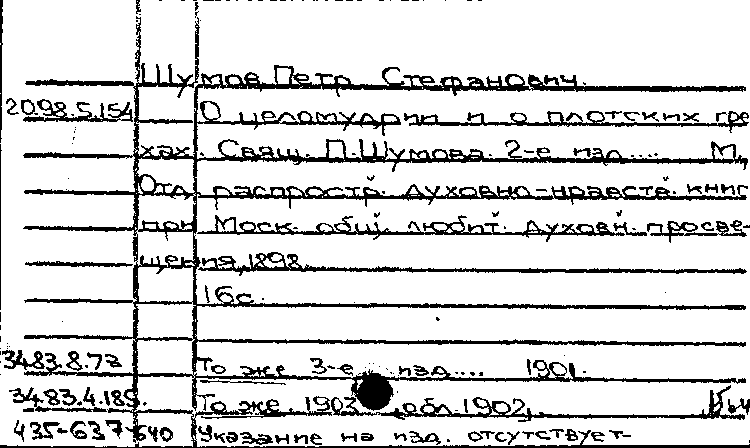 Шумов, Петр Стефанович.
20.98.5.154 О целомудрии и о плотских гре-
хах. Свящ. П. Шумова. 2-е изд.... М.,
Отд. распростр. духовно-нравств. книг
при Моск. общ. любит. духовн. просве-
щения, 1898.
16 с.
34.83.8.72 То же 3-е изд.... 1901.
34.83.4.185. То же. 1903 обл. 1902.
435-637 640 Указание на изд. отсутствует-